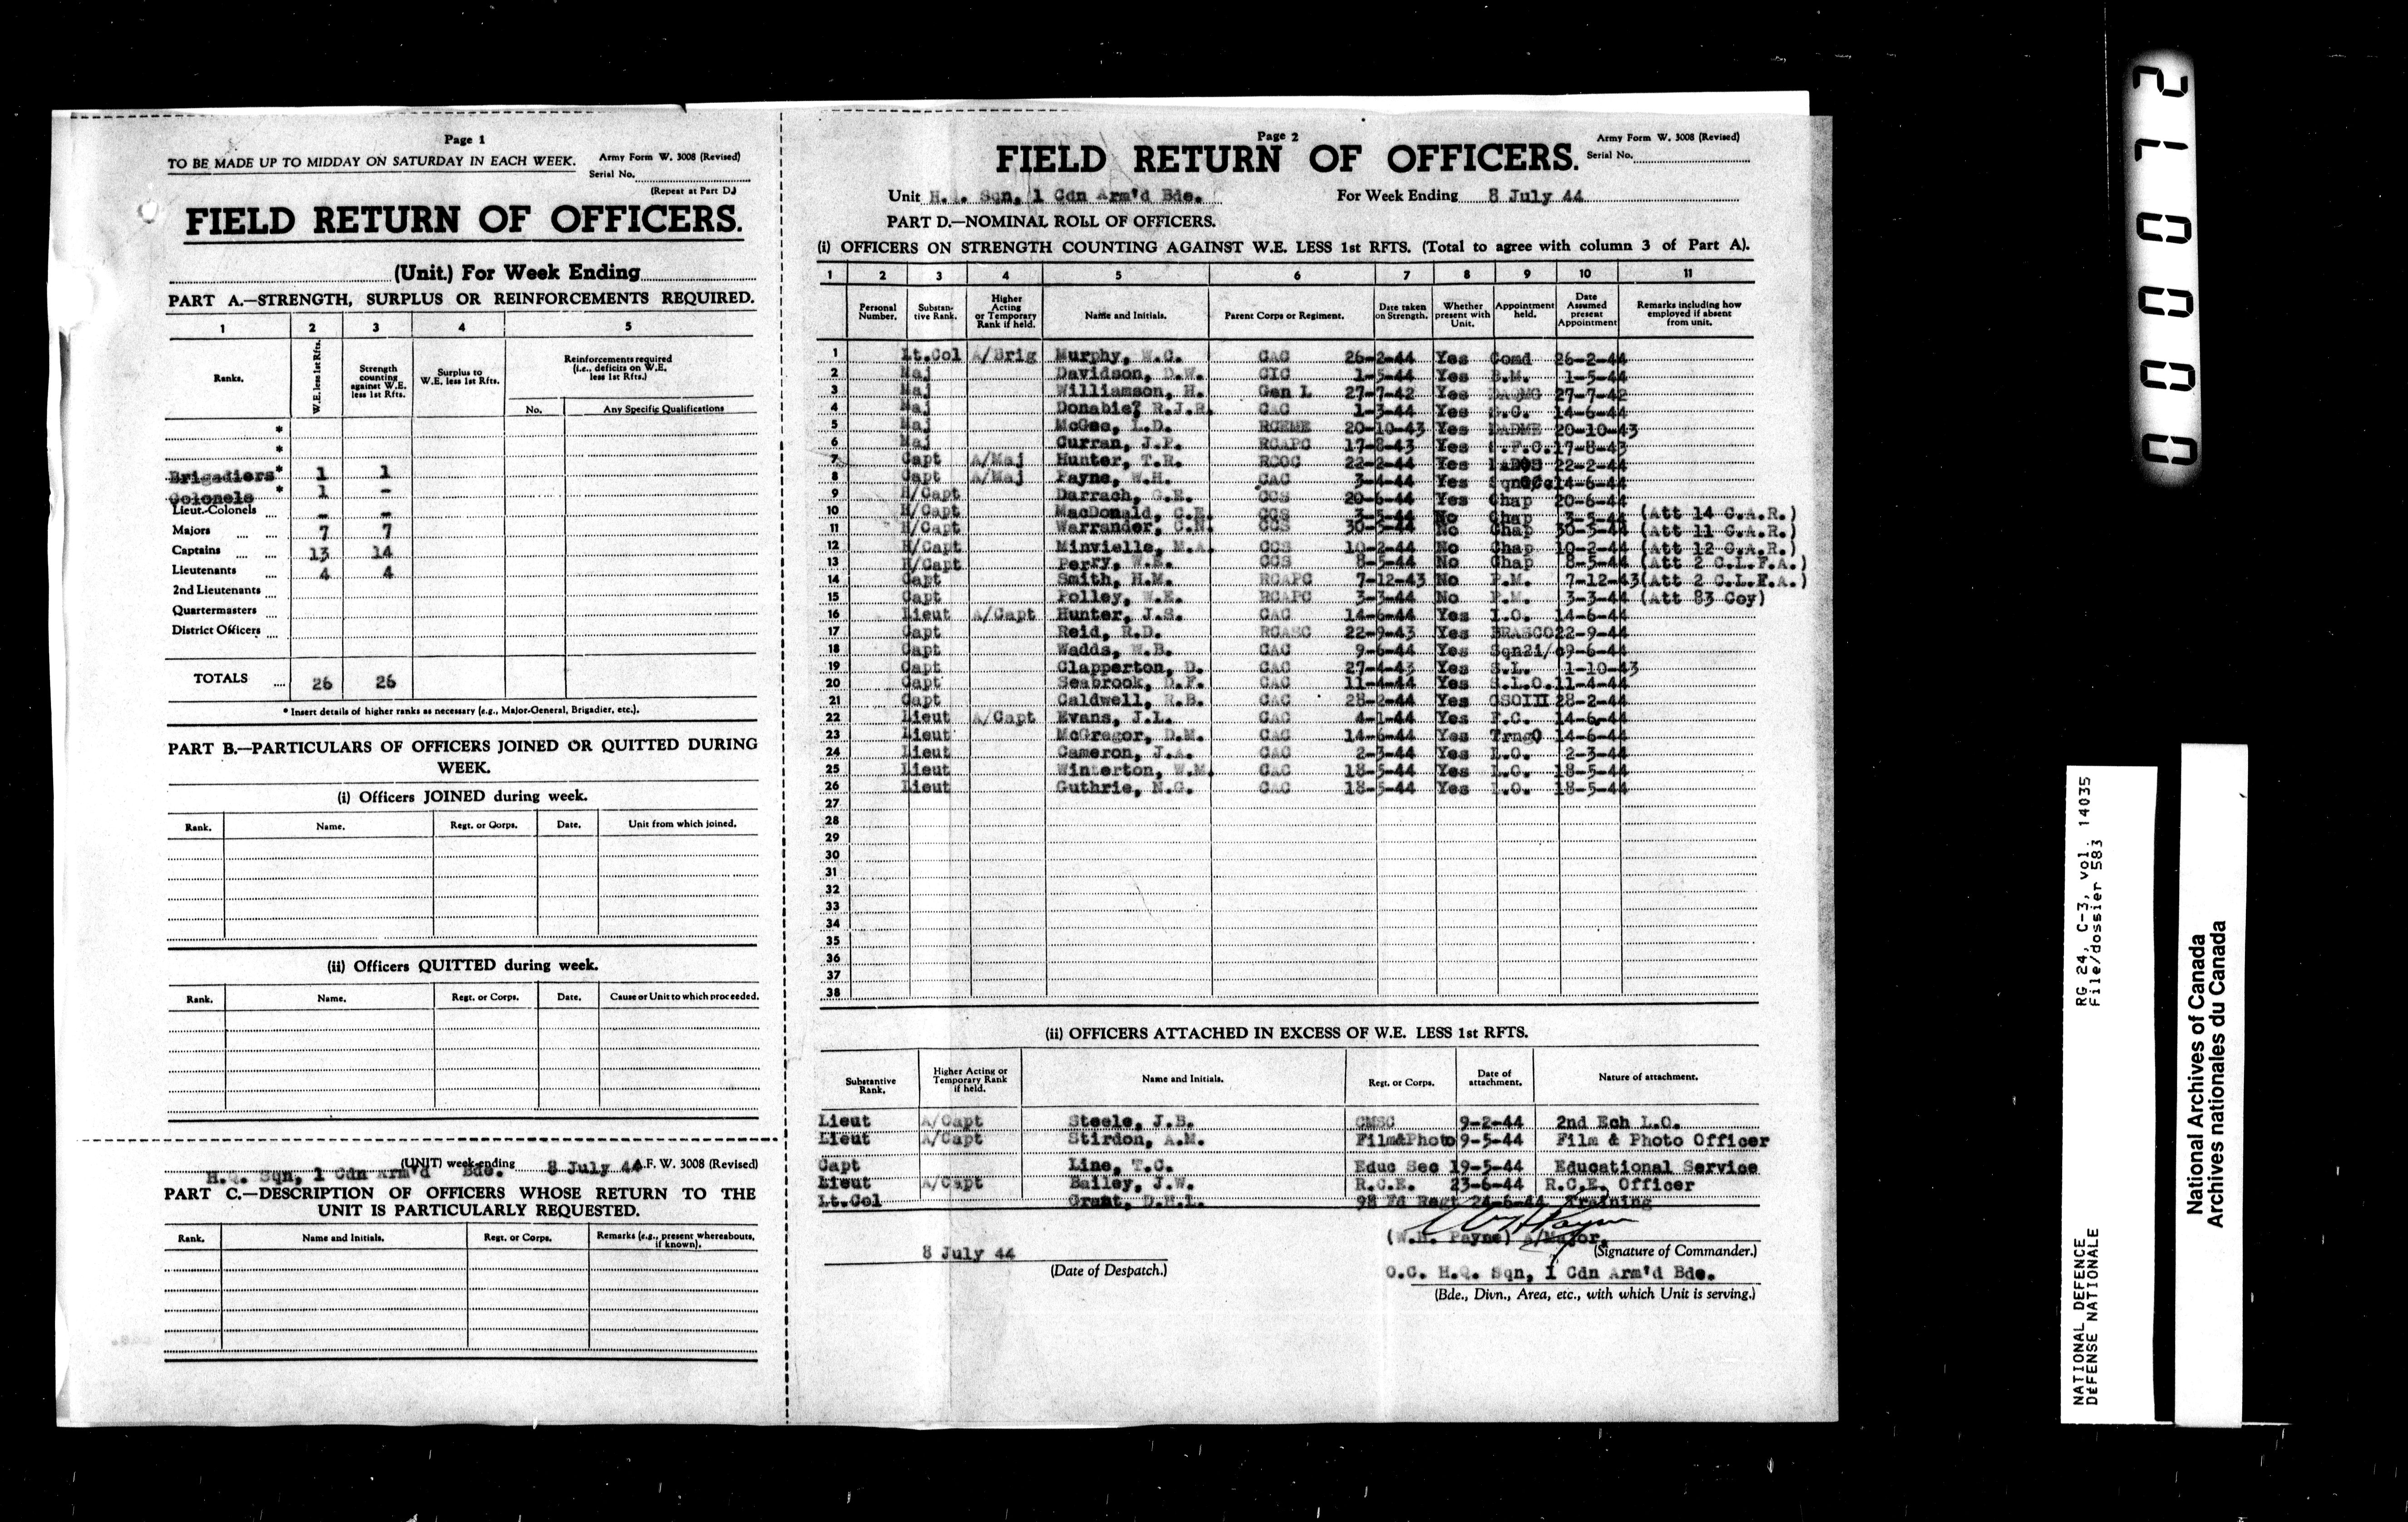 Page 1
TO BE MADE UP TO MIDDAY ON SATURDAY IN EACH WEEK.
Army Form W. 3008 (Revised)
Serial No.
(Repeat at Part D.)
FIELD RETURN OF OFFICERS.
(Unit.) For Week Ending
PART A.—STRENGTH, SURPLUS OR REINFORCEMENTS REQUIRED.
1 2 3 4 5
Ranks. W.E. less 1st Rfts. Strength counting against W.E. less 1st Rfts. Surplus to W.E. less 1st Rfts. Reinforcements required (i.e., deficits on W.E. less 1st Rfts.)
No. Any Specific Qualifications
*
*
Brigadiers* 1 1
Colonels * 1 -
Lieut.-Colonels .... - -
Majors .... .... 7 7
Captains .... .... 13 14
Lieutenants .... 4 4
2nd Lieutenants
Quartermasters ....
District Officers ....
TOTALS .... 26 26
* Insert details of higher ranks as necessary (e.g., Major-General, Brigadier, etc.).
PART B.—PARTICULARS OF OFFICERS JOINED OR QUITTED DURING
WEEK.
(i) Officers JOINED during week.
Rank. Name. Regt. or Corps. Date. Unit from which joined.
(ii) Officers QUITTED during week.
Rank. Name. Regt. or Corps. Date. Cause or Unit to which proceeded.
H.Q. Sqn, 1 Cdn Arm'd Bde. (UNIT) week-ending 8 July 44 A.F. W. 3008 (Revised)
PART C.—DESCRIPTION OF OFFICERS WHOSE RETURN TO THE
UNIT IS PARTICULARLY REQUESTED.
Rank. Name and Initials. Regt. or Corps. Remarks (e.g., present whereabouts, if known).
Page 2
Army Form W. 3008 (Revised)
FIELD RETURN OF OFFICERS.
Serial No.
Unit H.Q. Sqn, 1 Cdn Arm'd Bde. For Week Ending 8 July 44
PART D.—NOMINAL ROLL OF OFFICERS.
(i) OFFICERS ON STRENGTH COUNTING AGAINST W.E. LESS 1st RFTS. (Total to agree with column 3 of Part A).
1 2 3 4 5 6 7 8 9 10 11
Personal Number. Substantive Rank. Higher Acting or Temporary Rank if held. Name and Initials. Parent Corps or Regiment. Date taken on Strength. Whether present with Unit. Appointment held. Date Assumed present Appointment Remarks including how employed if absent from unit.
1 Lt.Col A/Brig Murphy, W.C. CAC 26-2-44 Yes Comd 26-2-44
2 Maj Davidson, D.W. CIC 1-5-44 Yes B.M. 1-5-44
3 Maj Williamson, H. Gen L 27-7-42 Yes DAQMG 27-7-42
4 Maj R.J.R. CAC 1-3-44 Yes 14-6-44
5 Maj McGee, L.D. RCEME 20-10-43 Yes DADME 20-10-43
6 Maj Curran, J.P. RCAPC 17-8-43 Yes 17-8-43
7 Capt A/Maj Hunter, T.R. RCOC 22-2-44 Yes 22-2-44
8 Capt A/Maj Payne, W.H. CAC 3-4-44 Yes 14-6-44
9 H/Capt Darrach, G.E. CCS 20-6-44 Yes Chap 20-6-44
10 H/Capt MacDonald, C.E. CCS 3-5-44 No Chap 3-5-44 (Att 14 C.A.R.)
11 H/Capt Warrander, C.N. CCS 30-5-44 No Chap 30-5-44 (Att 11 C.A.R.)
12 H/Capt Minvielle, M.A. CCS 10-2-44 No Chap 10-2-44 (Att 12 C.A.R.)
13 H/Capt Perry, W.E. CCS 8-5-44 No Chap 8-5-44 (Att 2 C.L.F.A.)
14 Capt Smith, H.M. RCAPC 7-12-43 No P.M. 7-12-43 (Att 2 C.L.F.A.)
15 Capt Polley, W.E. RCAPC 3-3-44 No P.M. 3-3-44 (Att 83 Coy)
16 Lieut A/Capt Hunter, J.S. CAC 14-6-44 Yes I.O. 14-6-44
17 Capt Reid, R.D. RCASC 22-9-43 Yes BRASCO 22-9-44
18 Capt Wadds, W.B. CAC 9-6-44 Yes Sqn2i/c 9-6-44
19 Capt Clapperton, D. CAC 27-4-43 Yes S.L. 1-10-43
20 Capt Seabrook, D.F. CAC 11-4-44 Yes S.L.O. 11-4-44
21 Capt Caldwell, R.B. CAC 28-2-44 Yes GSOIII 28-2-44
22 Lieut A/Capt Evans, J.L. CAC 4-1-44 Yes 14-6-44
23 Lieut McGregor, D.M. CAC 14-6-44 Yes TrngO 14-6-44
24 Lieut Cameron, J.A. CAC 2-3-44 Yes L.O. 2-3-44
25 Lieut Winterton, W.M. CAC 18-5-44 Yes L.O. 18-5-44
26 Lieut Guthrie, N.C. CAC 18-5-44 Yes L.O. 18-5-44
27
28
29
30
31
32
33
34
35
36
37
38
(ii) OFFICERS ATTACHED IN EXCESS OF W.E. LESS 1st RFTS.
Substantive Rank. Higher Acting or Temporary Rank if held. Name and Initials. Regt. or Corps. Date of attachment. Nature of attachment.
Lieut A/Capt Steele, J.B. CMSC 9-2-44 2nd Ech L.O.
Lieut A/Capt Stirdon, A.M. Film&Photo 9-5-44 Film & Photo Officer
Capt Line, T.C. Educ Sec 19-5-44 Educational Service
Lieut A/Capt Bailey, J.W. R.C.E. 23-6-44 R.C.E. Officer
Lt.Col Grant, D.H.L. 98 Fd Regt 24-6-44 Training
(W.H. Payne) A/Major.
8 July 44 (Signature of Commander.)
(Date of Despatch.) O.C. H.Q. Sqn, 1 Cdn Arm'd Bde.
(Bde., Divn., Area, etc., with which Unit is serving.)
NATIONAL DEFENCE RG 24, C-3, vol. 14035
DEFENSE NATIONALE File/dossier 583
National Archives of Canada
Archives nationales du Canada